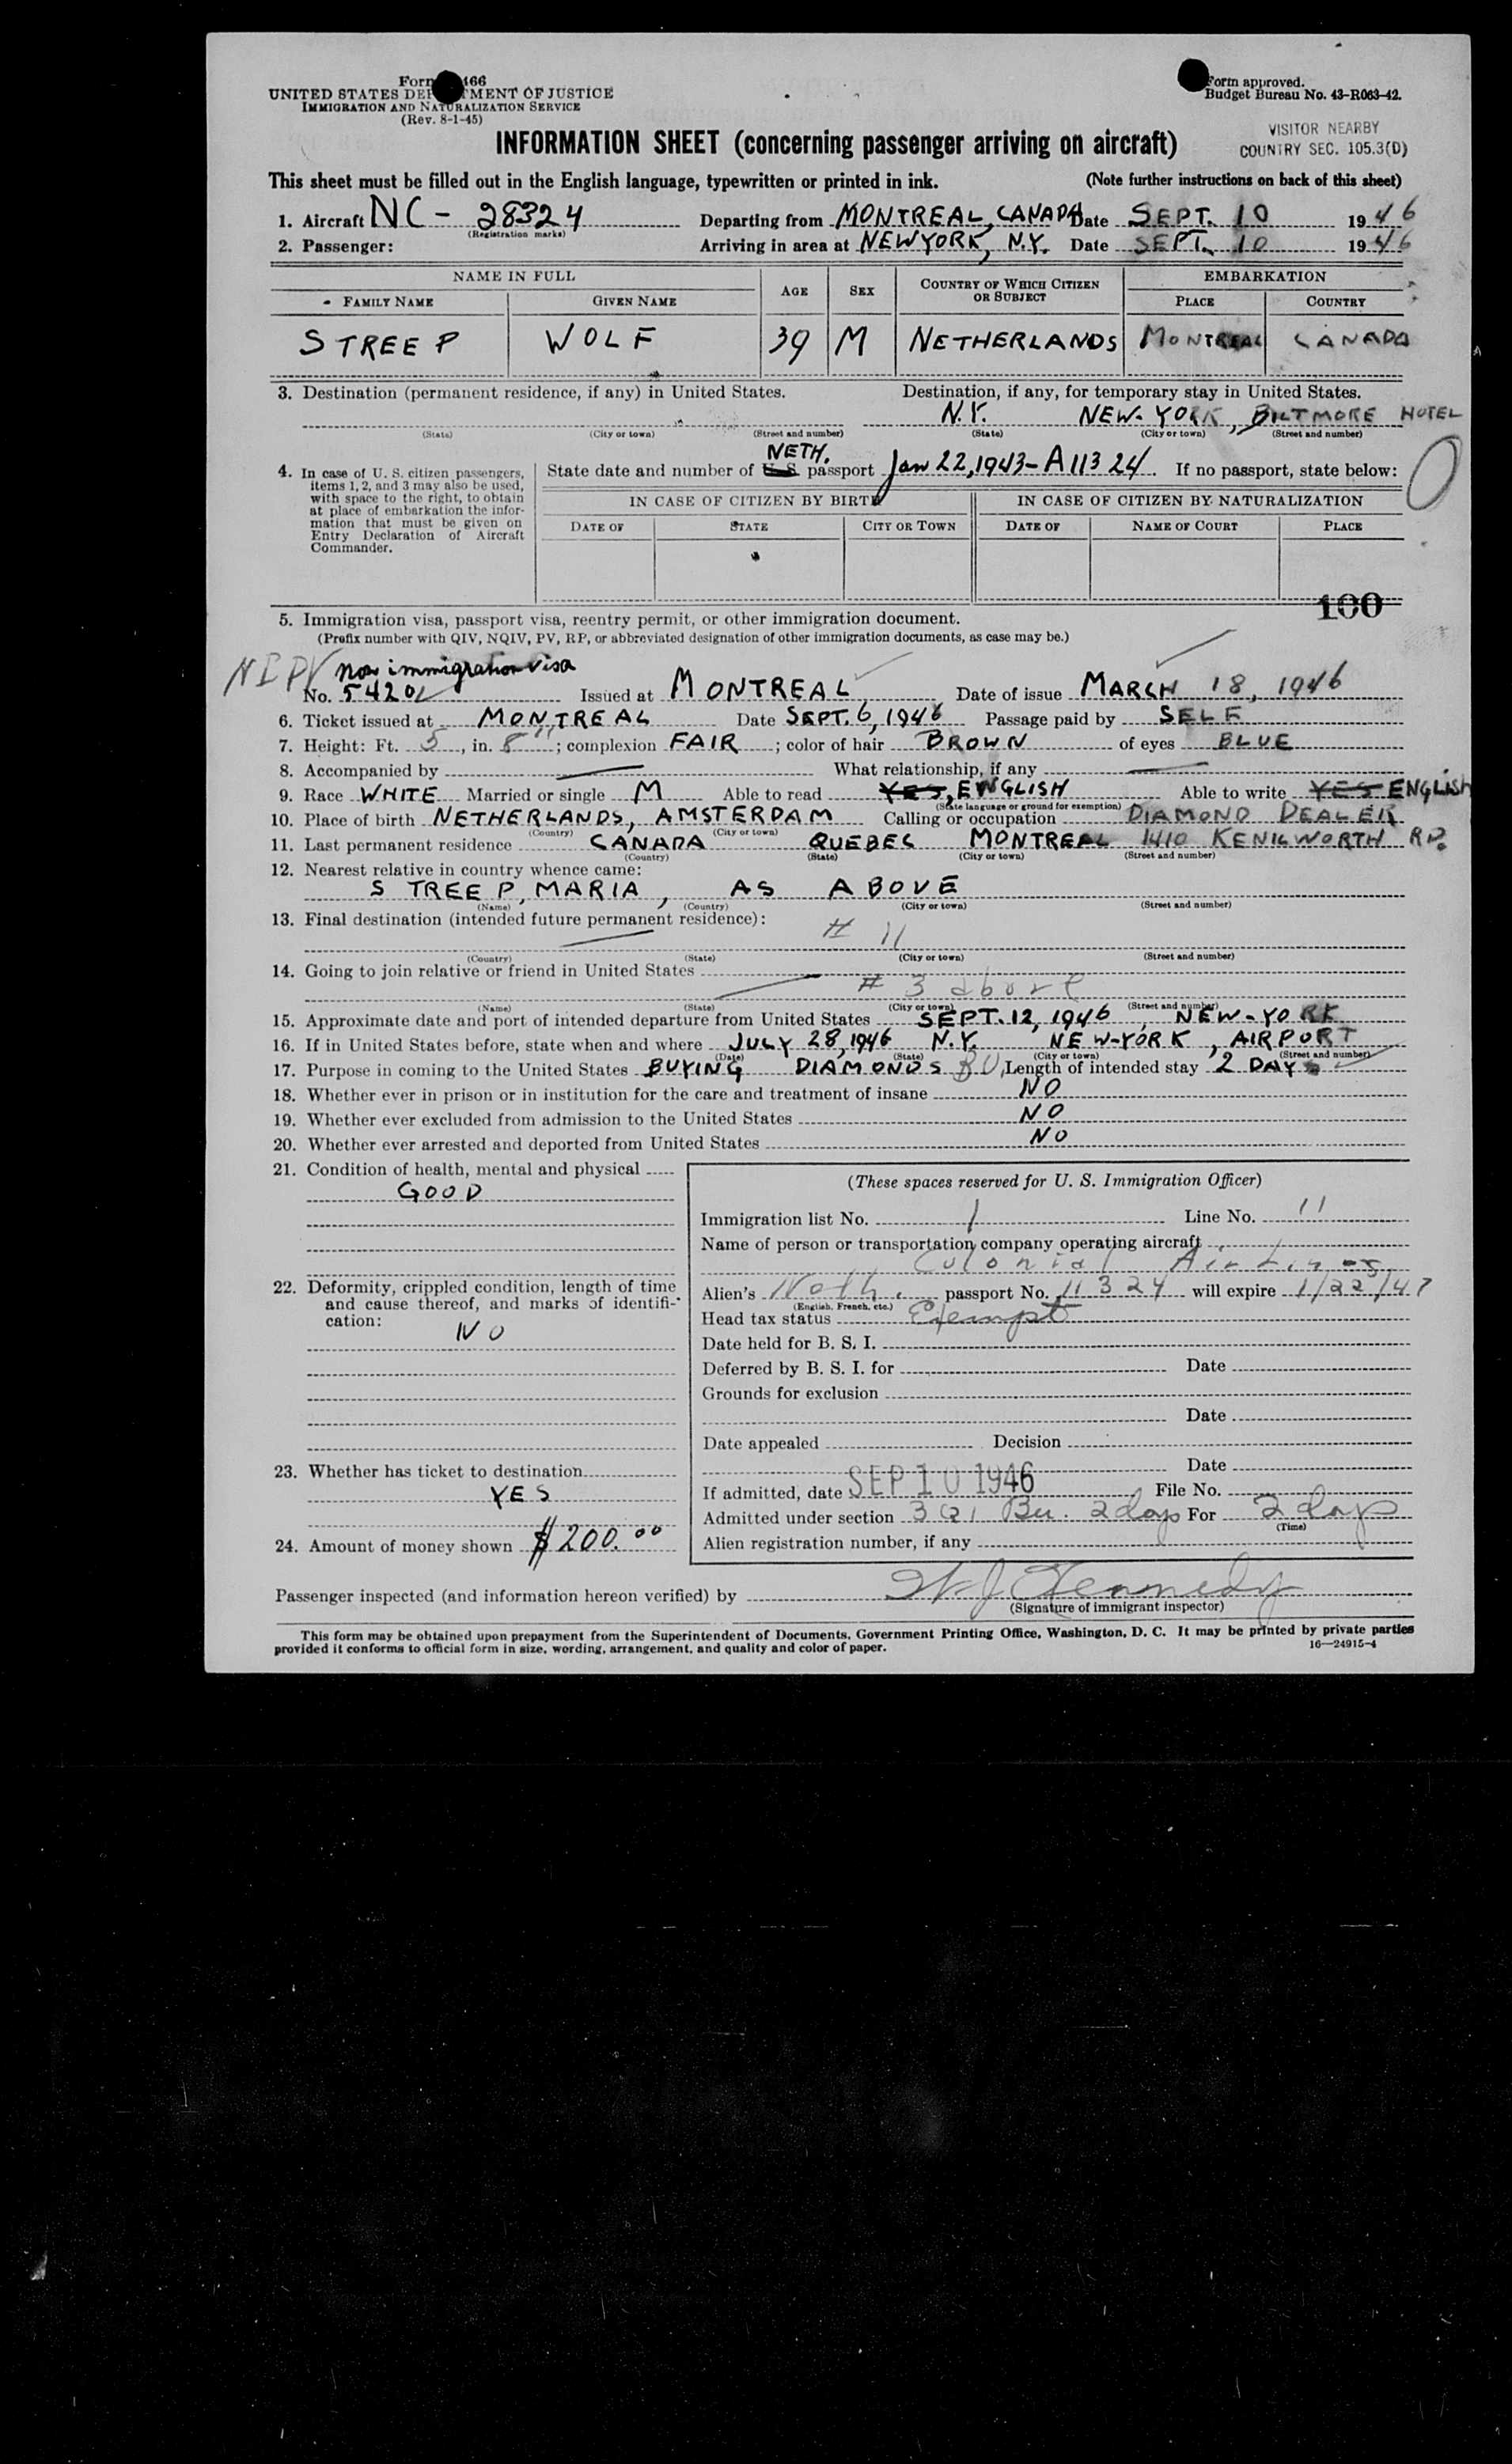 Form 466
Form approved.
UNITED STATES DEPARTMENT OF JUSTICE
Budget Bureau No. 43-R063-42.
IMMIGRATION AND NATURALIZATION SERVICE
(Rev. 8-1-45)
VISITOR NEARBY
COUNTRY SEC. 105.3(D)
INFORMATION SHEET (concerning passenger arriving on aircraft)
This sheet must be filled out in the English language, typewritten or printed in ink. (Note further instructions on back of this sheet)
1. Aircraft NC - 28324 Departing from MONTREAL, CANADA Date SEPT. 10 1946
(Registration marks)
2. Passenger: Arriving in area at NEW YORK, N.Y. Date SEPT. 10 1946
NAME IN FULL AGE SEX COUNTRY OF WHICH CITIZEN OR SUBJECT EMBARKATION
FAMILY NAME GIVEN NAME PLACE COUNTRY
STREEP WOLF 39 M NETHERLANDS MONTREAL CANADA
3. Destination (permanent residence, if any) in United States. Destination, if any, for temporary stay in United States.
N.Y. NEW-YORK, BILTMORE HOTEL
(State) (City or town) (Street and number) (State) (City or town) (Street and number)
NETH.
4. In case of U. S. citizen passengers, items 1, 2, and 3 may also be used, with space to the right, to obtain at place of embarkation the information that must be given on Entry Declaration of Aircraft Commander.
State date and number of U. S. passport Jan 22, 1943 - A 11324 If no passport, state below:
IN CASE OF CITIZEN BY BIRTH IN CASE OF CITIZEN BY NATURALIZATION
DATE OF STATE CITY OR TOWN DATE OF NAME OF COURT PLACE
100
5. Immigration visa, passport visa, reentry permit, or other immigration document.
(Prefix number with QIV, NQIV, PV, RP, or abbreviated designation of other immigration documents, as case may be.)
NIPV Non immigration visa
No. 5420 Issued at MONTREAL Date of issue MARCH 18, 1946
6. Ticket issued at MONTREAL Date SEPT. 6, 1946 Passage paid by SELF
7. Height: Ft. 5, in. 8"; complexion FAIR; color of hair BROWN of eyes BLUE
8. Accompanied by What relationship, if any
9. Race WHITE Married or single M Able to read YES, ENGLISH Able to write YES ENGLISH
(State language or ground for exemption)
10. Place of birth NETHERLANDS, AMSTERDAM Calling or occupation DIAMOND DEALER
(Country) (City or town)
11. Last permanent residence CANADA QUEBEC MONTREAL 1410 KENILWORTH RD.
(Country) (State) (City or town) (Street and number)
12. Nearest relative in country whence came:
STREEP, MARIA, AS ABOVE
(Name) (Country) (City or town) (Street and number)
13. Final destination (intended future permanent residence):
# 11
(Country) (State) (City or town) (Street and number)
14. Going to join relative or friend in United States
# 3 above
(Name) (State) (City or town) (Street and number)
15. Approximate date and port of intended departure from United States SEPT. 12, 1946, NEW-YORK
16. If in United States before, state when and where JULY 28, 1946 N.Y. NEW-YORK, AIRPORT
(Date) (State) (City or town) (Street and number)
17. Purpose in coming to the United States BUYING DIAMONDS BU, Length of intended stay 2 DAYS
18. Whether ever in prison or in institution for the care and treatment of insane NO
19. Whether ever excluded from admission to the United States NO
20. Whether ever arrested and deported from United States NO
21. Condition of health, mental and physical
GOOD
22. Deformity, crippled condition, length of time and cause thereof, and marks of identification:
NO
23. Whether has ticket to destination
YES
24. Amount of money shown $200.00
(These spaces reserved for U. S. Immigration Officer)
Immigration list No. 1 Line No. 11
Name of person or transportation company operating aircraft
Colonial Air Lines
Alien's Neth. passport No. 11324 will expire 1/22/47
(English, French, etc.)
Head tax status Exempt
Date held for B. S. I.
Deferred by B. S. I. for Date
Grounds for exclusion
Date
Date appealed Decision
Date
If admitted, date SEP 10 1946 File No.
Admitted under section 3(2) Bu. 2 days For 2 days
(Time)
Alien registration number, if any
Passenger inspected (and information hereon verified) by W J Kennedy
(Signature of immigrant inspector)
This form may be obtained upon prepayment from the Superintendent of Documents, Government Printing Office, Washington, D. C. It may be printed by private parties
provided it conforms to official form in size, wording, arrangement, and quality and color of paper. 16—24915-4